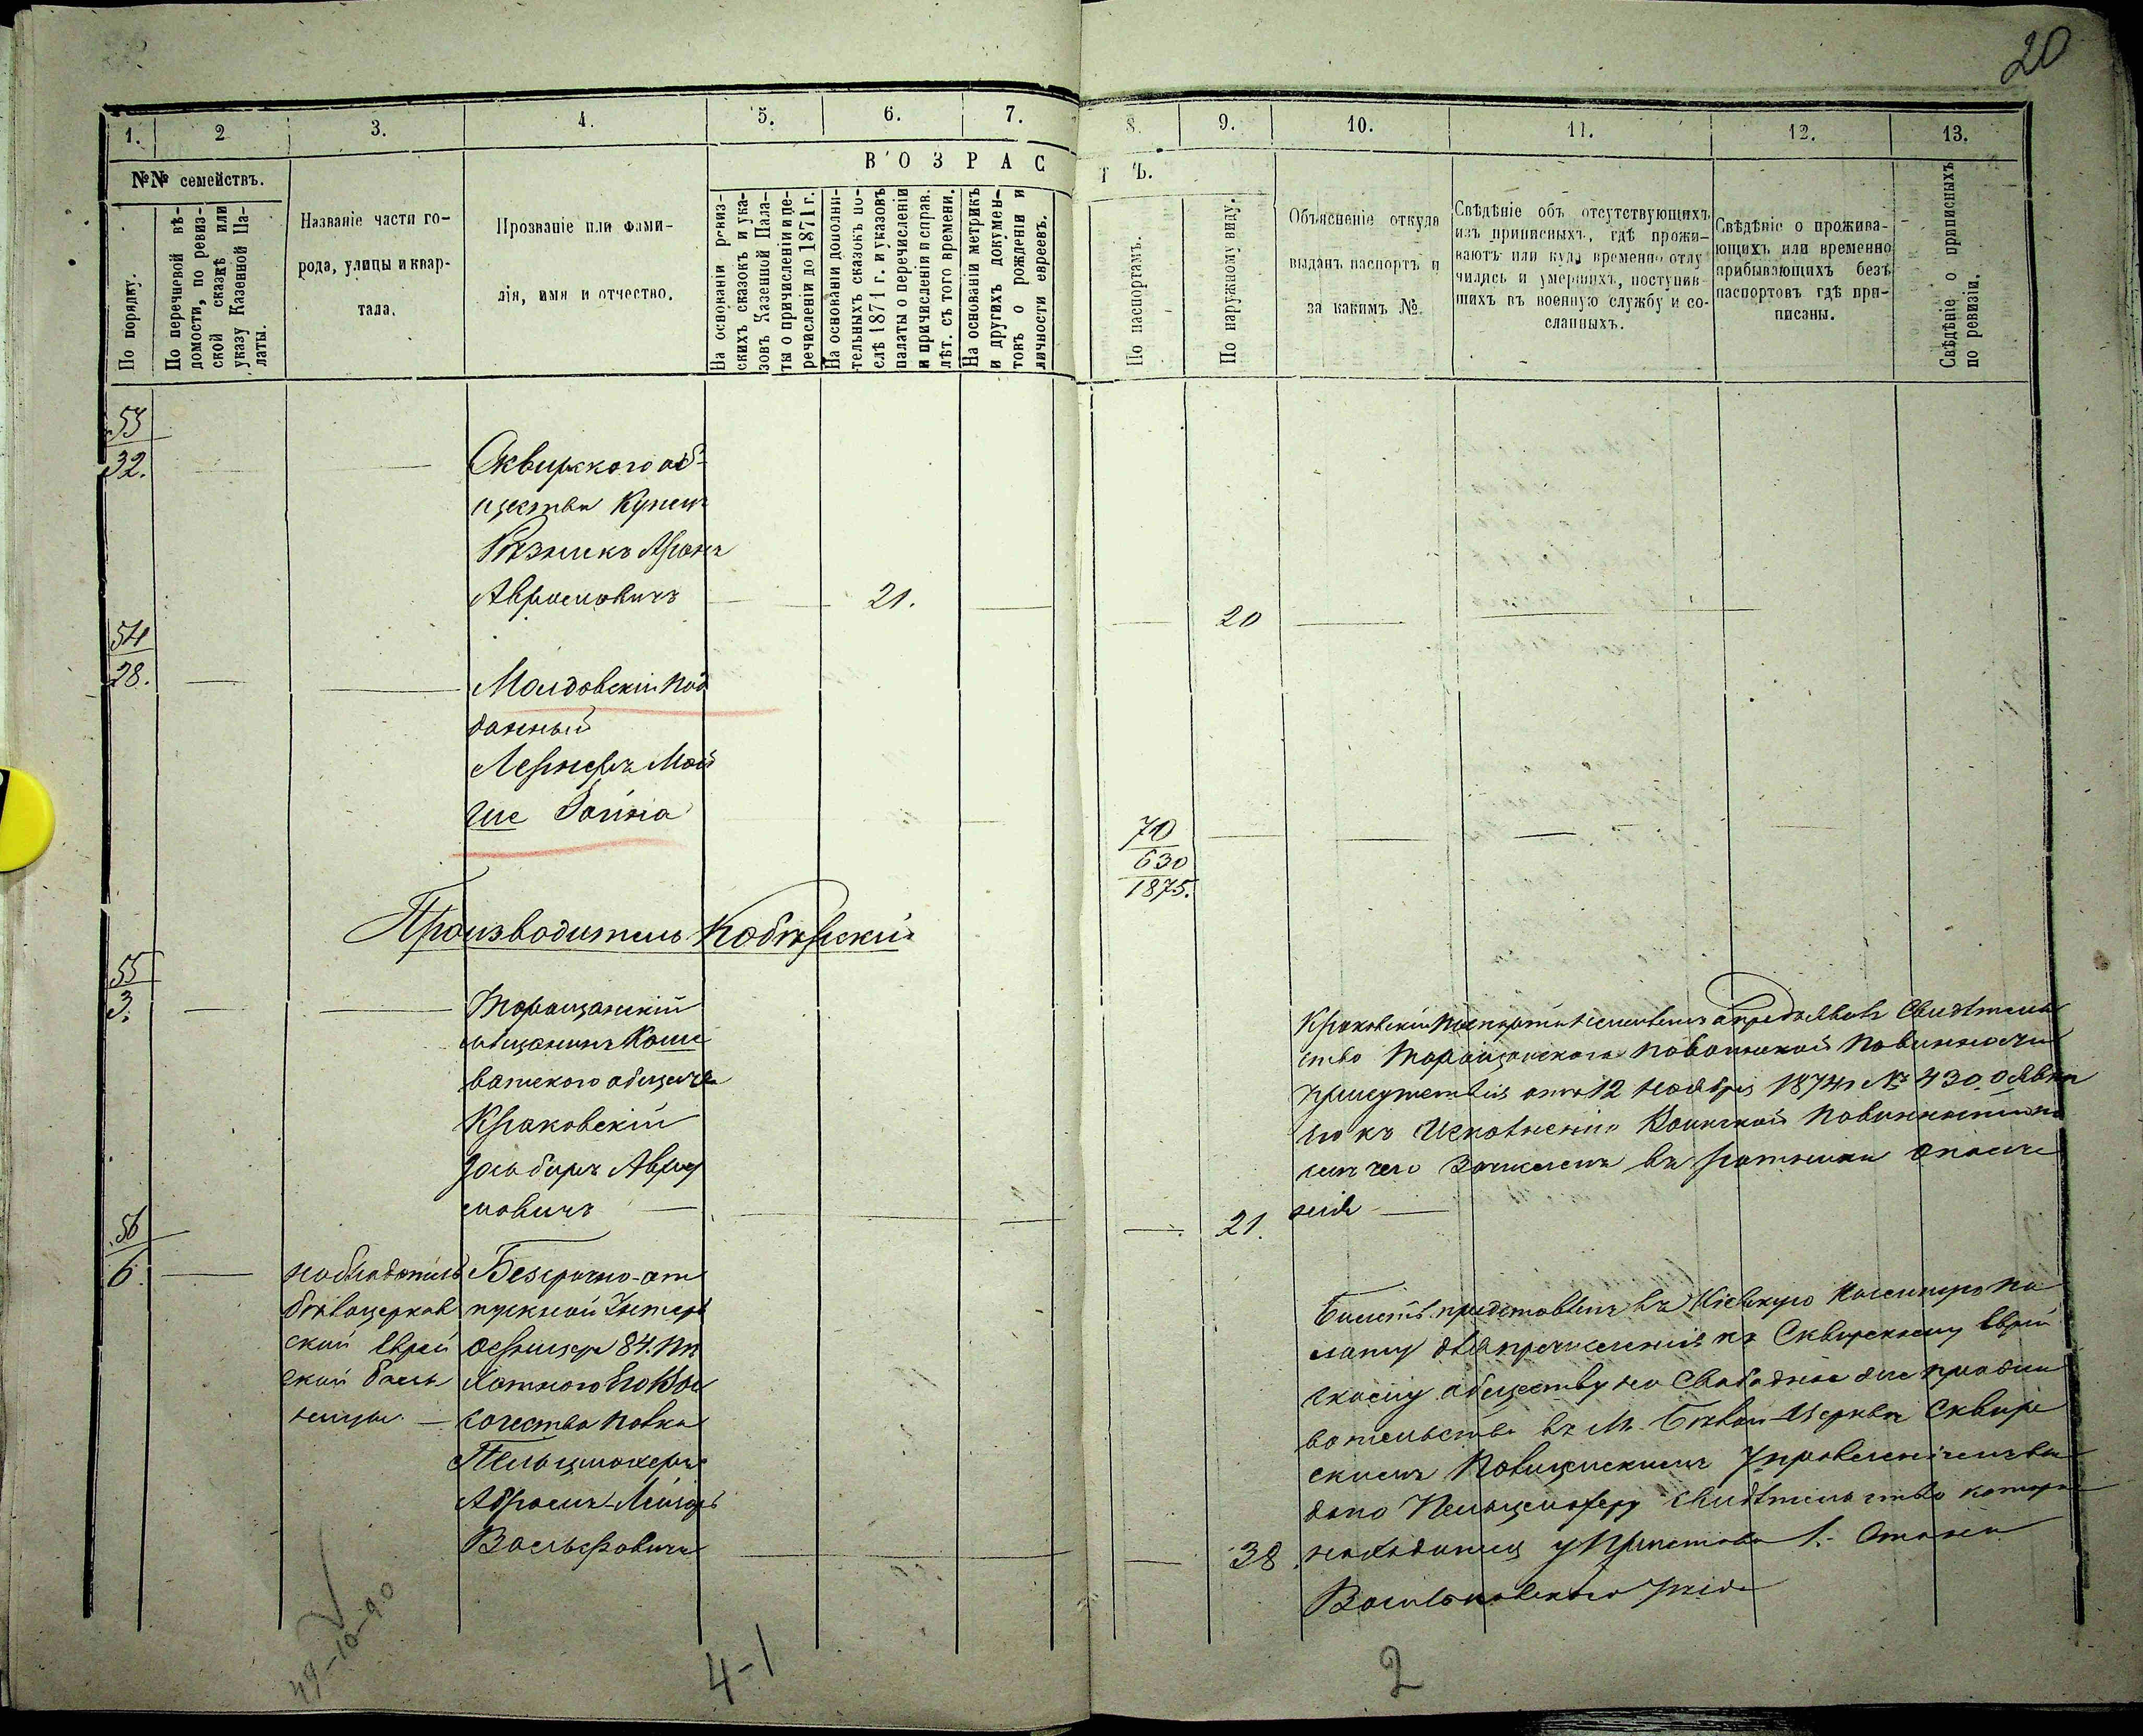 20
1. 2 3. 4. 5. 6. 7. 8. 9. 10. 11. 12. 13.
№№ семействъ.
ВОЗРАСТЪ.
По порядку.
По перечневой вѣ-
домости, по ревиз-
ской сказкѣ или
указу Казенной Па-
латы.
Названіе части го-
рода, улицы и квар-
тала.
Прозваніе или фами-
лія, имя и отчество.
На основаніи ревиз-
скихъ сказокъ и ука-
зовъ Казенной Пала-
ты о причисленіи и пе-
речисленіи до 1871 г.
На основаніи дополни-
тельныхъ сказокъ по-
слѣ 1871 г. и указовъ
палаты о перечисленіи
и причисленіи и справ.
лѣт. съ того времени.
На основаніи метрикъ
и другихъ докумен-
товъ о рожденіи и
личности евреевъ.
По паспортамъ.
По наружному виду.
Объясненіе откуда
выданъ паспортъ и
за какимъ №.
Свѣдѣніе объ отсутствующихъ
изъ приписныхъ, гдѣ прожи-
ваютъ или куда временно отлу
чились и умершихъ, поступив-
шихъ въ военную службу и со-
сланныхъ.
Свѣдѣніе о прожива-
ющихъ или временно
прибывающихъ безъ
паспортовъ гдѣ при-
писаны.
Свѣдѣніе о приписныхъ
по ревизіи.
53
32.
Сквирскаго об-
щества Купецъ
Рѣзникъ Аронъ
Аврамовичъ
21.
20
54
28.
Молдовскій под
данный
Лернеръ Мой
ше Зойна
70
630
1875.
Производитель Кобѣрскій
55
3.
Таращанскій
мѣщанинъ Коше
ватскаго общества
Краковскій
Зельберъ Авра
мовичъ
21.
Краковскій паспорта неимѣетъ а предъявилъ Свидѣтель
ство Таращанскаго по воинской повинности
присутствія отъ 12 ноября 1874 г № 430. о явкѣ
его къ исполненію Воинской повинности по
сему чего зачисленъ въ ратники ополче
нія
56
6.
наблюдатель
бѣлоцерков
ской еврей
ской боль
ницы
Безсрочно-от
пускной Унтеръ
офицеръ 84. Пѣ
хотнаго Его Вы
сочества полка
Пельцмахеръ
Абрамъ-Лейзеръ
Вольфовичъ
38
Билетъ представленъ въ Кіевскую Казенную па
лату для причисленія къ Сквирскому еврей
скому обществу на свободное
въ М. Бѣлой-Церкви Сквир
скимъ Полицейскимъ Управленіемъ вы
дано Пельцмахеру свидѣтельство которое
находится у Пристава 1. Стана
Васильковскаго уѣзда
49-10-90
4-1
2